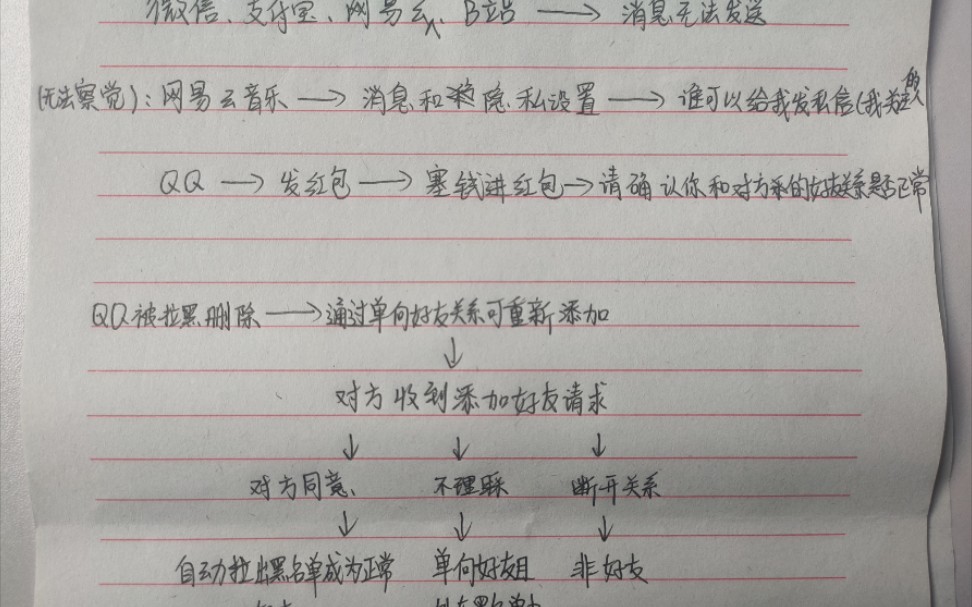 微信、支付宝、网易云、B站 → 消息无法发送
(无法察觉):网易云音乐 → 消息和隐私设置 → 谁可以给我发私信(我关注的人
QQ → 发红包 → 塞钱进红包 → 请确认你和对方的好友关系是否正常
QQ被拉黑删除 → 通过单向好友关系可重新添加
↓
对方收到添加好友请求
↓ ↓ ↓
对方同意、 不理睬 断开关系
↓ ↓ ↓
自动拉出黑名单成为正常 单向好友且 非好友